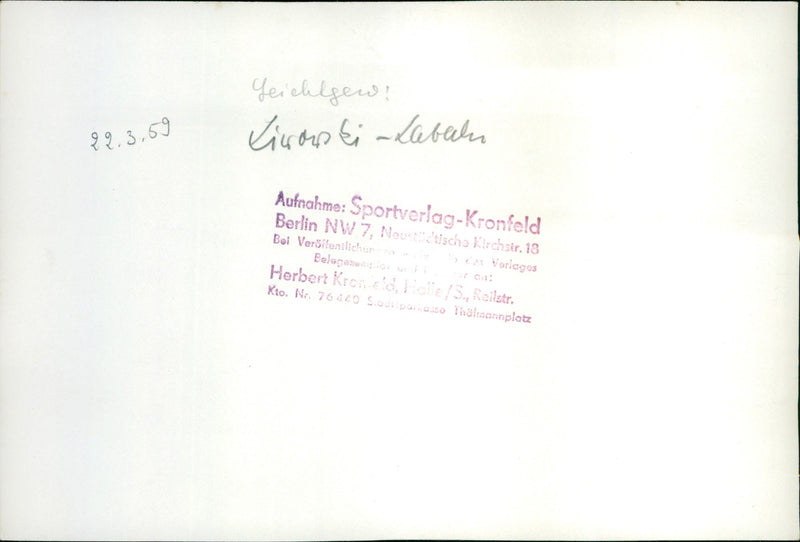 Leichtgew:
22.3.59
Liwowski - Labahn
Aufnahme: Sportverlag-Kronfeld
Berlin NW 7, Neustädtische Kirchstr. 18
Bei Veröffentlichungen des Verlages
Belegexemplar an:
Herbert Kronfeld, Halle/S., Reilstr.
Kto. Nr. 76440 Stadtsparkasse Thälmannplatz